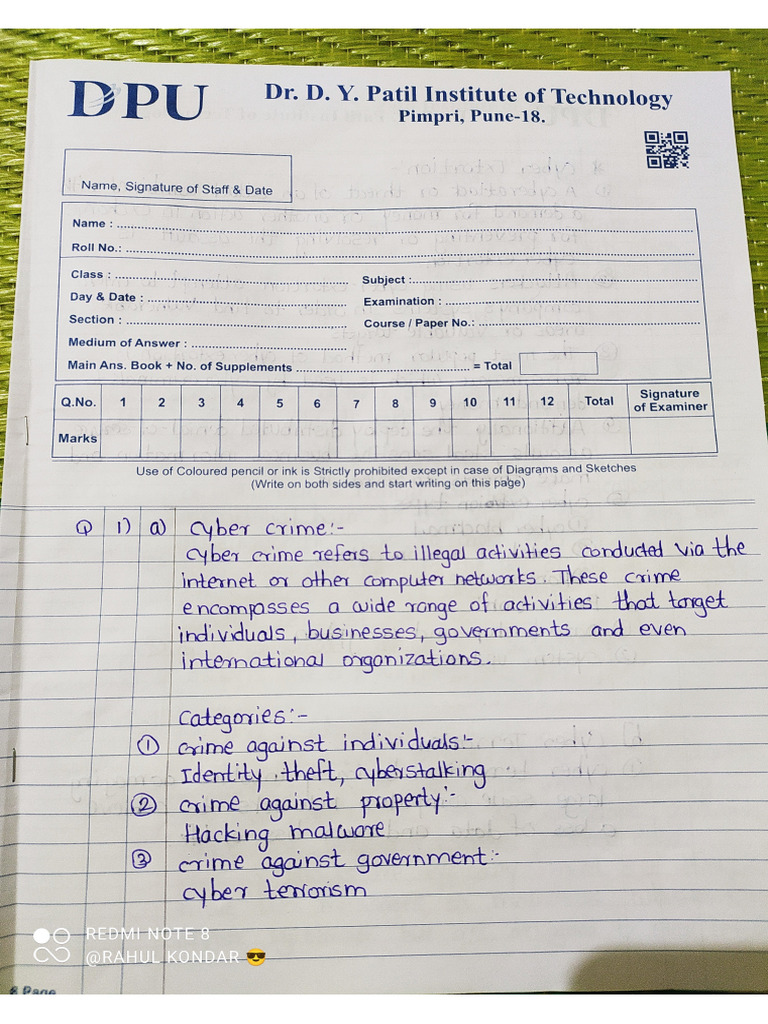 DPU
Dr. D. Y. Patil Institute of Technology
Pimpri, Pune-18.
Name, Signature of Staff & Date
Name :
Roll No.:
Class :
Subject :
Day & Date :
Examination :
Section :
Course / Paper No.:
Medium of Answer :
Main Ans. Book + No. of Supplements = Total
Q.No. 1 2 3 4 5 6 7 8 9 10 11 12 Total Signature of Examiner
Marks
Use of Coloured pencil or ink is Strictly prohibited except in case of Diagrams and Sketches
(Write on both sides and start writing on this page)
Q 1) a) Cyber crime:-
Cyber crime refers to illegal activities conducted via the
internet or other computer networks. These crime
encompasses a wide range of activities that target
individuals, businesses, governments and even
international organizations.
Categories:-
① crime against individuals:-
Identity theft, cyberstalking
② crime against property:-
Hacking malware
③ crime against government:-
cyber terrorism
REDMI NOTE 8
@RAHUL KONDAR 😎
8 Page